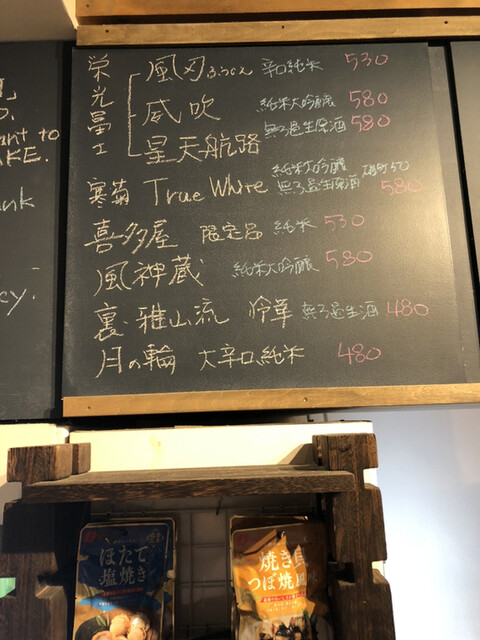 榮光冨士
風刃 ふうじん 辛口純米 530
威吹 純米大吟醸 580
星天航路 無ろ過生原酒 580
寒菊 True White 純米大吟醸 無ろ過生原酒 580
喜多屋 限定品 純米 530
風神蔵 純米大吟醸 580
裏・雅山流 冷華 無ろ過生酒 480
月の輪 大辛口純米 480
ant to
AKE.
ank
cy.
ほたて
塩焼き
焼き貝
つぼ焼風味